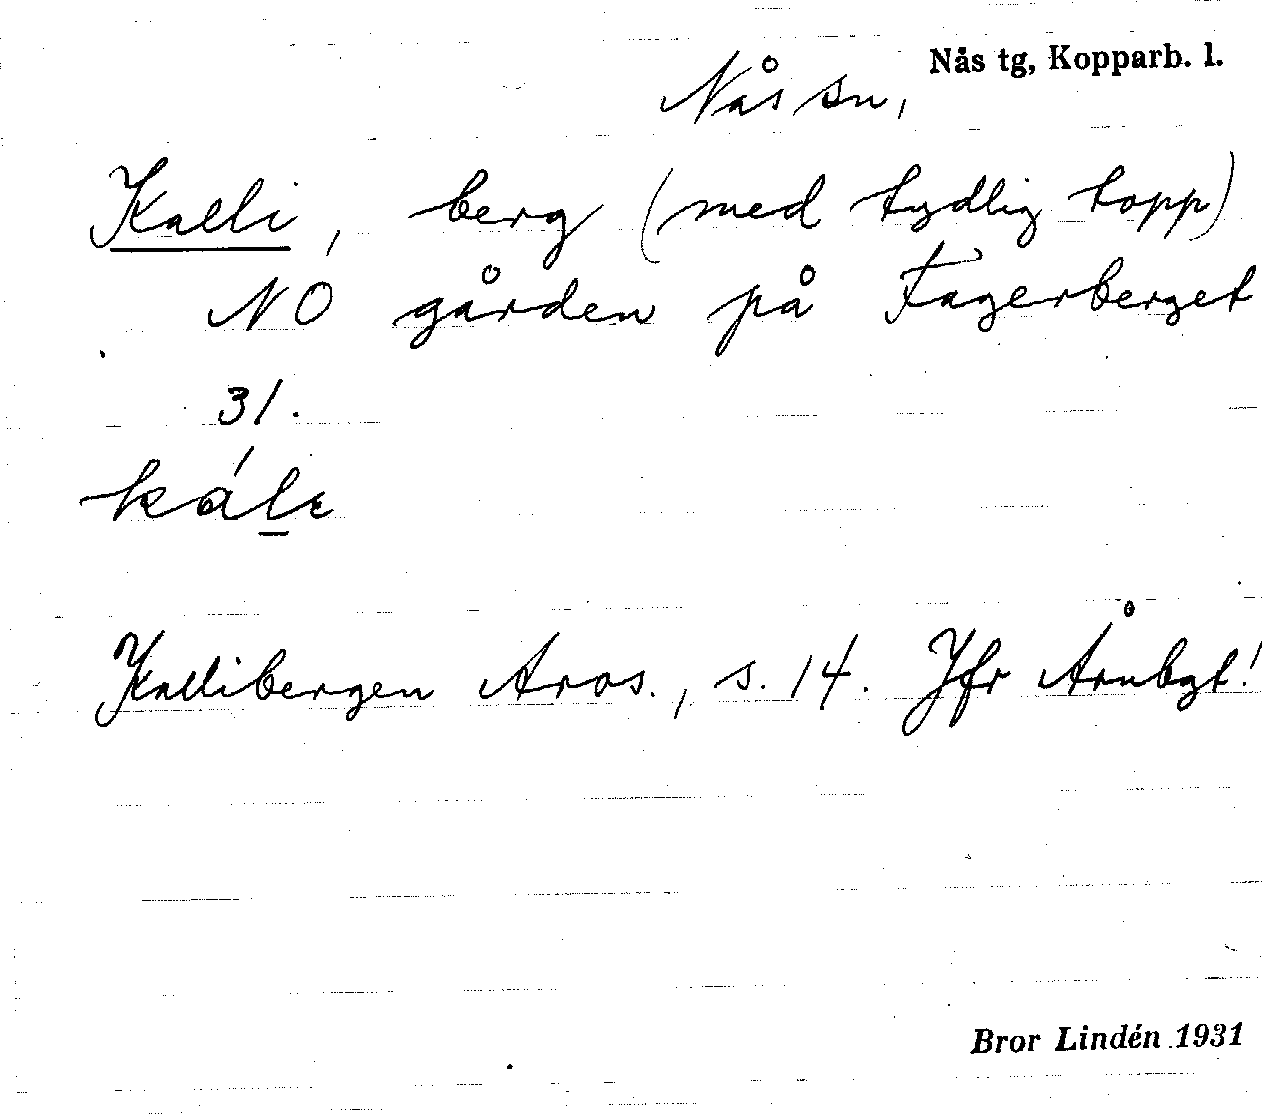 Nås tg, Kopparb. l.
Nås sn,
Kalli, berg (med tydlig topp)
NO gården på Fagerberget
31.
Kallibergen Aros., s. 14. Jfr Årnbgt!
Bror Lindén 1931